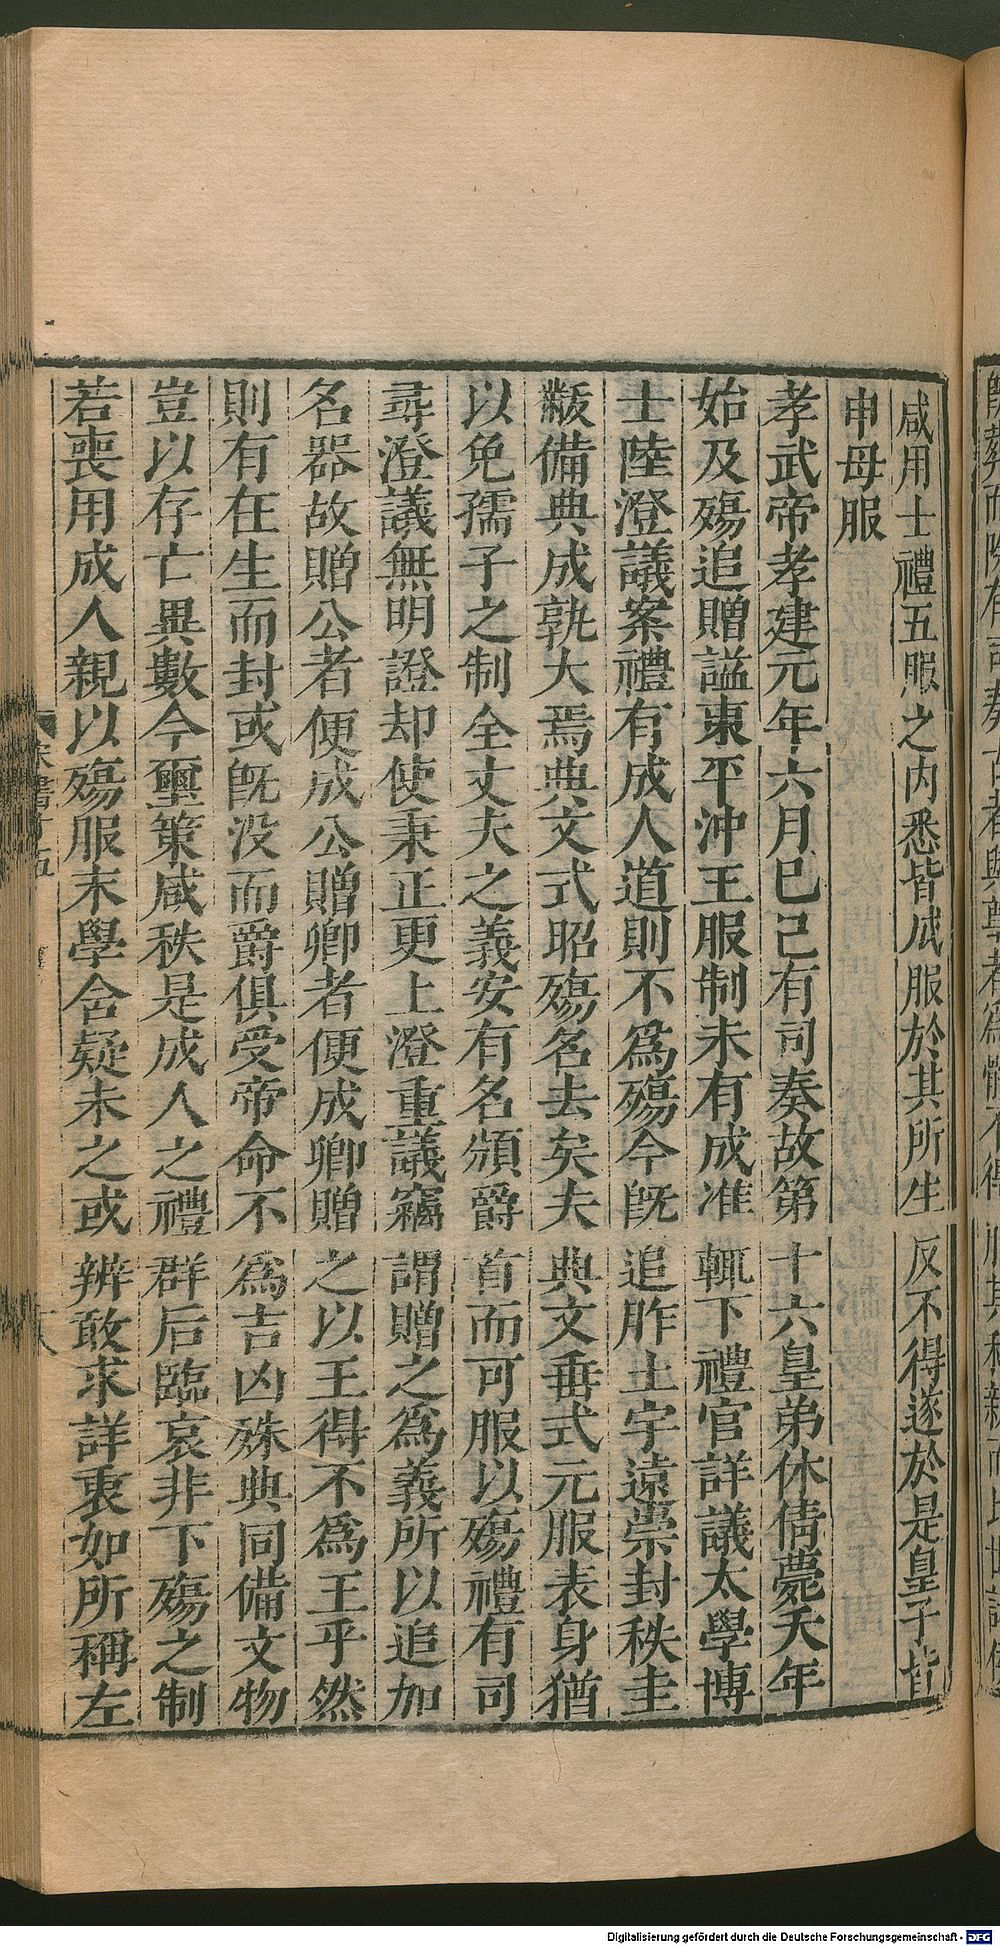 咸用士禮五服之内悉皆成服於其所生反不得遂於是皇子皆
申母服
孝武帝孝建元年六月己巳有司奏故第十六皇弟休倩薨夭年
始及殤追贈謚東平沖王服制未有成准輒下禮官詳議太學博
士陸澄議案禮有成人道則不爲殤今旣追胙土宇遠崇封秩圭
黻備典成孰大焉典文式昭殤名去矣夫典文垂式元服表身猶
以免孺子之制全丈夫之義安有名頒爵首而可服以殤禮有司
尋澄議無明證却使秉正更上澄重議竊謂贈之爲義所以追加
名器故贈公者便成公贈卿者便成卿贈之以王得不爲王乎然
則有在生而封或旣没而爵俱受帝命不爲吉凶殊典同備文物
豈以存亡異數今璽策咸秩是成人之禮群后臨哀非下殤之制
若喪用成人親以殤服末學含疑未之或辨敢求詳衷如所稱左
Digitalisierung gefördert durch die Deutsche Forschungsgemeinschaft - DFG